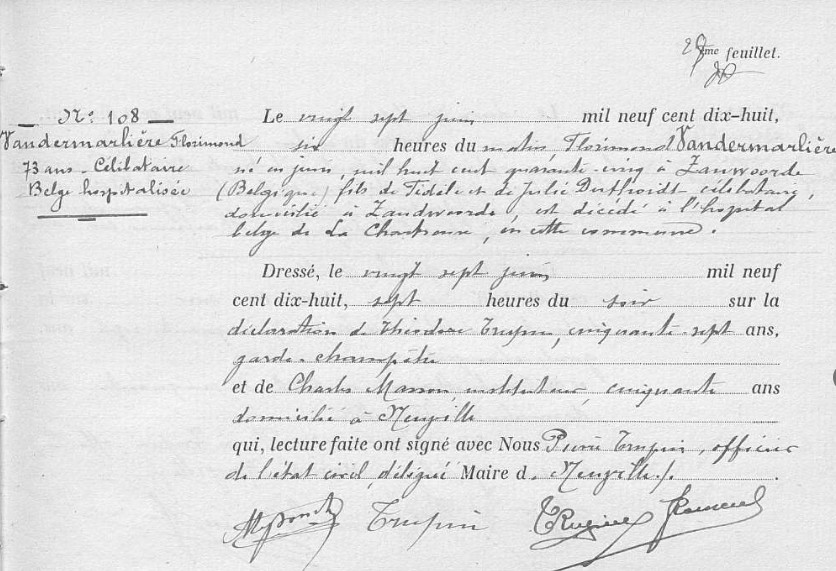 29me feuillet.
30
N° 108
Vandermarlière Florimond
73 ans - Célibataire
Belge hospitalisée
Le vingt sept juin mil neuf cent dix-huit,
six heures du matin, Florimond Vandermarlière
né en juin, mil huit cent quarante-cinq à Zanwoorde
(Belgique) fils de Fidèle et de Julie célibataire,
domicilié à Zandwoorde, est décédé à l'hopital
belge de La Chartreuse, en cette commune.
Dressé, le vingt sept juin mil neuf
cent dix-huit, sept heures du soir sur la
déclaration de Théodore Trupin, cinquante-sept ans,
garde-champêtre
et de Charles Masson, instituteur, cinquante ans
domicilié à Neuville
qui, lecture faite ont signé avec Nous Pierre Trupin, officier
de l'état civil, délégué Maire d. Neuville./.
Trupin